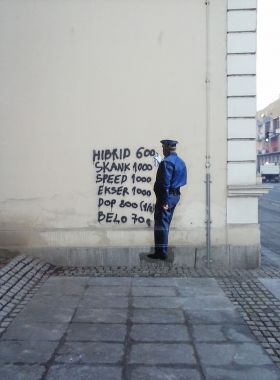 HIBRID 600
SKANK 1000
SPEED 1000
EKSER 1000
DOP 800
BELO 70